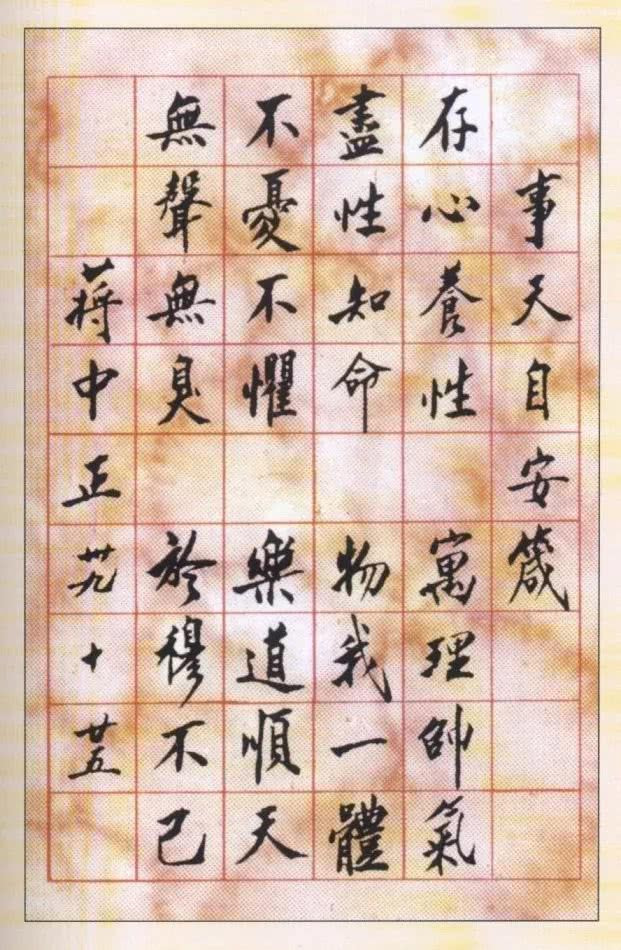 事天自安箴
存心養性 寓理帥氣
盡性知命 物我一體
不憂不懼 樂道順天
無聲無臭 於穆不已
蔣中正卅九十廿五